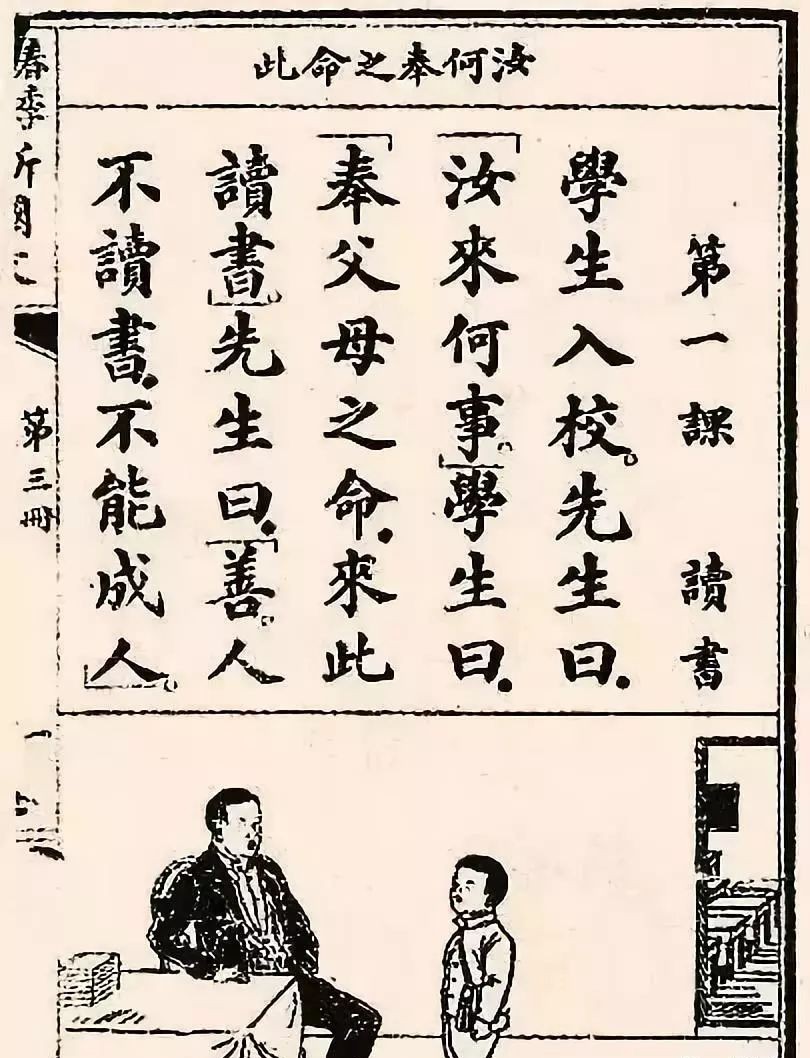 汝何奉之命此
第一課 讀書
學生入校。先生曰.
「汝來何事。」學生曰.
「奉父母之命.來此
讀書。」先生曰.「善。人
不讀書.不能成人。」
春季
第三冊
一